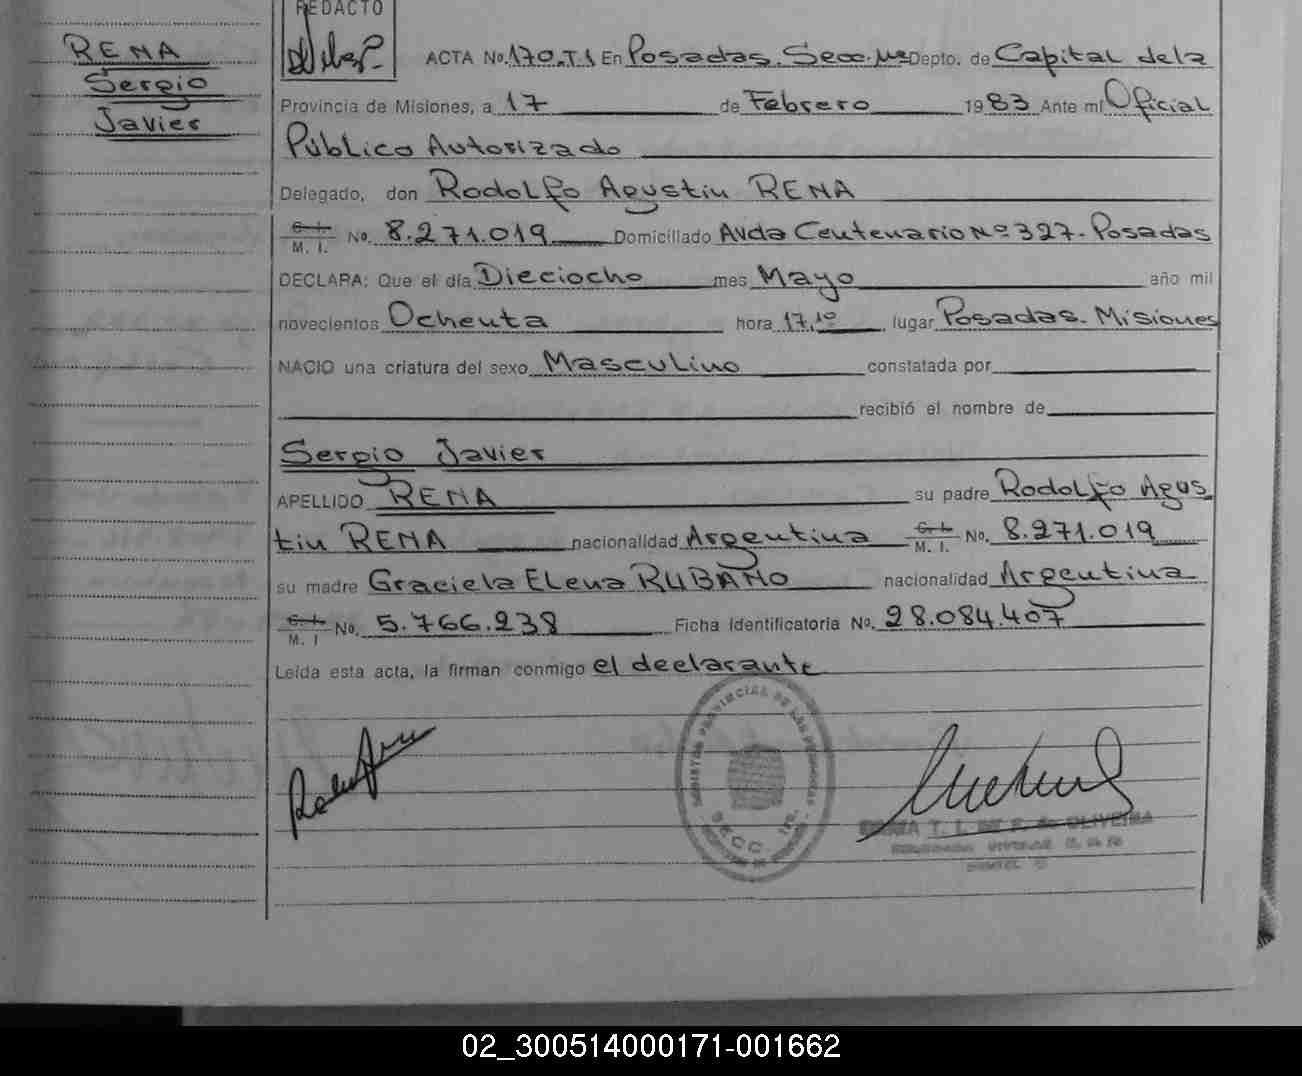 REDACTO
RENA
Sergio
Javier
ACTA No. 170.T.1 En Posadas. Secc. 1ra Depto. de Capital de la
Provincia de Misiones, a 17 de Febrero 1983 Ante mí Oficial
Público Autorizado
Delegado, don Rodolfo Agustin RENA
C. I.
M. I. No. 8.271.019 Domiciliado Avda Centenario Nº 327. Posadas
DECLARA: Que el día Dieciocho mes Mayo año mil
novecientos Ochenta hora 17,10 lugar Posadas. Misiones
NACIO una criatura del sexo Masculino constatada por
recibió el nombre de
Sergio Javier
APELLIDO RENA su padre Rodolfo Agus
tin RENA nacionalidad Argentina C. I.
M. I. No. 8.271.019
su madre Graciela Elena RUBAÑO nacionalidad Argentina
C. I.
M. I No. 5.766.238 Ficha Identificatoria No. 28.084.407
Leída esta acta, la firman conmigo el declarante
REGISTRO PROVINCIAL DE LAS PERSONAS
SECC. 1ra.
T. I. DE E. de OLIVEIRA
02_300514000171-001662